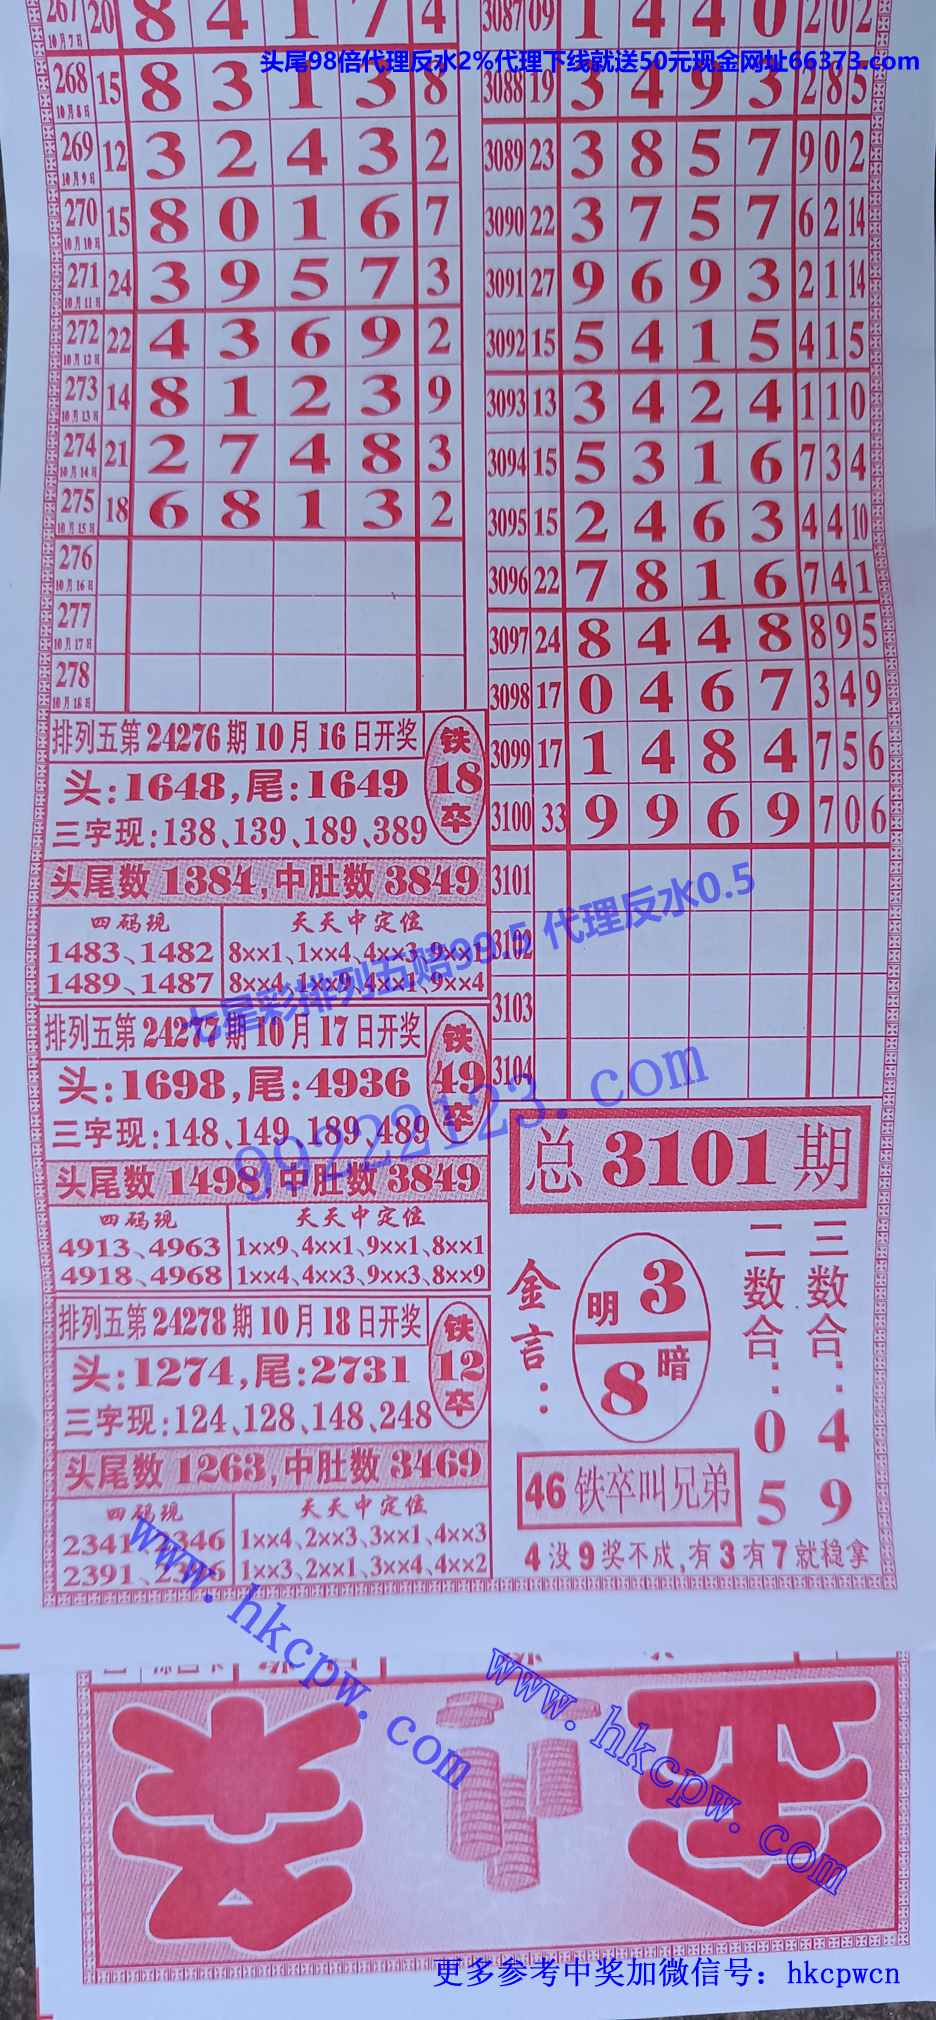 267 20 8 4 1 7 4
10月7日
头尾98倍代理反水2%代理下线就送50元现金网址66373.com
268 15 8 3 1 3 8
10月8日
269 12 3 2 4 3 2
10月9日
270 15 8 0 1 6 7
10月10日
271 24 3 9 5 7 3
10月11日
272 22 4 3 6 9 2
10月12日
273 14 8 1 2 3 9
10月13日
274 21 2 7 4 8 3
10月14日
275 18 6 8 1 3 2
10月15日
276
10月16日
277
10月17日
278
10月18日
3087 09 1 4 4 0 2 0 2
3088 19 3 4 9 3 2 8 5
3089 23 3 8 5 7 9 0 2
3090 22 3 7 5 7 6 2 14
3091 27 9 6 9 3 2 1 14
3092 15 5 4 1 5 4 1 5
3093 13 3 4 2 4 1 1 0
3094 15 5 3 1 6 7 3 4
3095 15 2 4 6 3 4 4 10
3096 22 7 8 1 6 7 4 1
3097 24 8 4 4 8 8 9 5
3098 17 0 4 6 7 3 4 9
3099 17 1 4 8 4 7 5 6
3100 33 9 9 6 9 7 0 6
3101
3102
3103
3104
排列五第24276期10月16日开奖
头:1648,尾:1649
铁18卒
三字现:138、139、189、389
头尾数1384,中肚数3849
四码现
1483、1482
1489、1487
天天中定位
8××1、1××4、4××3、9××1
8××4、1××9、4××1、9××4
七星彩排列五赔99.5 代理反水0.5
排列五第24277期10月17日开奖
头:1698,尾:4936
铁49卒
三字现:148、149、189、489
99222123.com
头尾数1498,中肚数3849
四码现
4913、4963
4918、4968
天天中定位
1××9、4××1、9××1、8××1
1××4、4××3、9××3、8××9
排列五第24278期10月18日开奖
头:1274,尾:2731
铁12卒
三字现:124、128、148、248
头尾数1263,中肚数3469
四码现
2341、2346
2391、2396
天天中定位
1××4、2××3、3××1、4××3
1××3、2××1、3××4、4××2
总3101期
金言:
明3
8暗
二数合:05
三数合:49
46铁卒叫兄弟
4没9奖不成,有3有7就稳拿
www.hkcpw.com
www.hkcpw.com
更多参考中奖加微信号：hkcpwcn